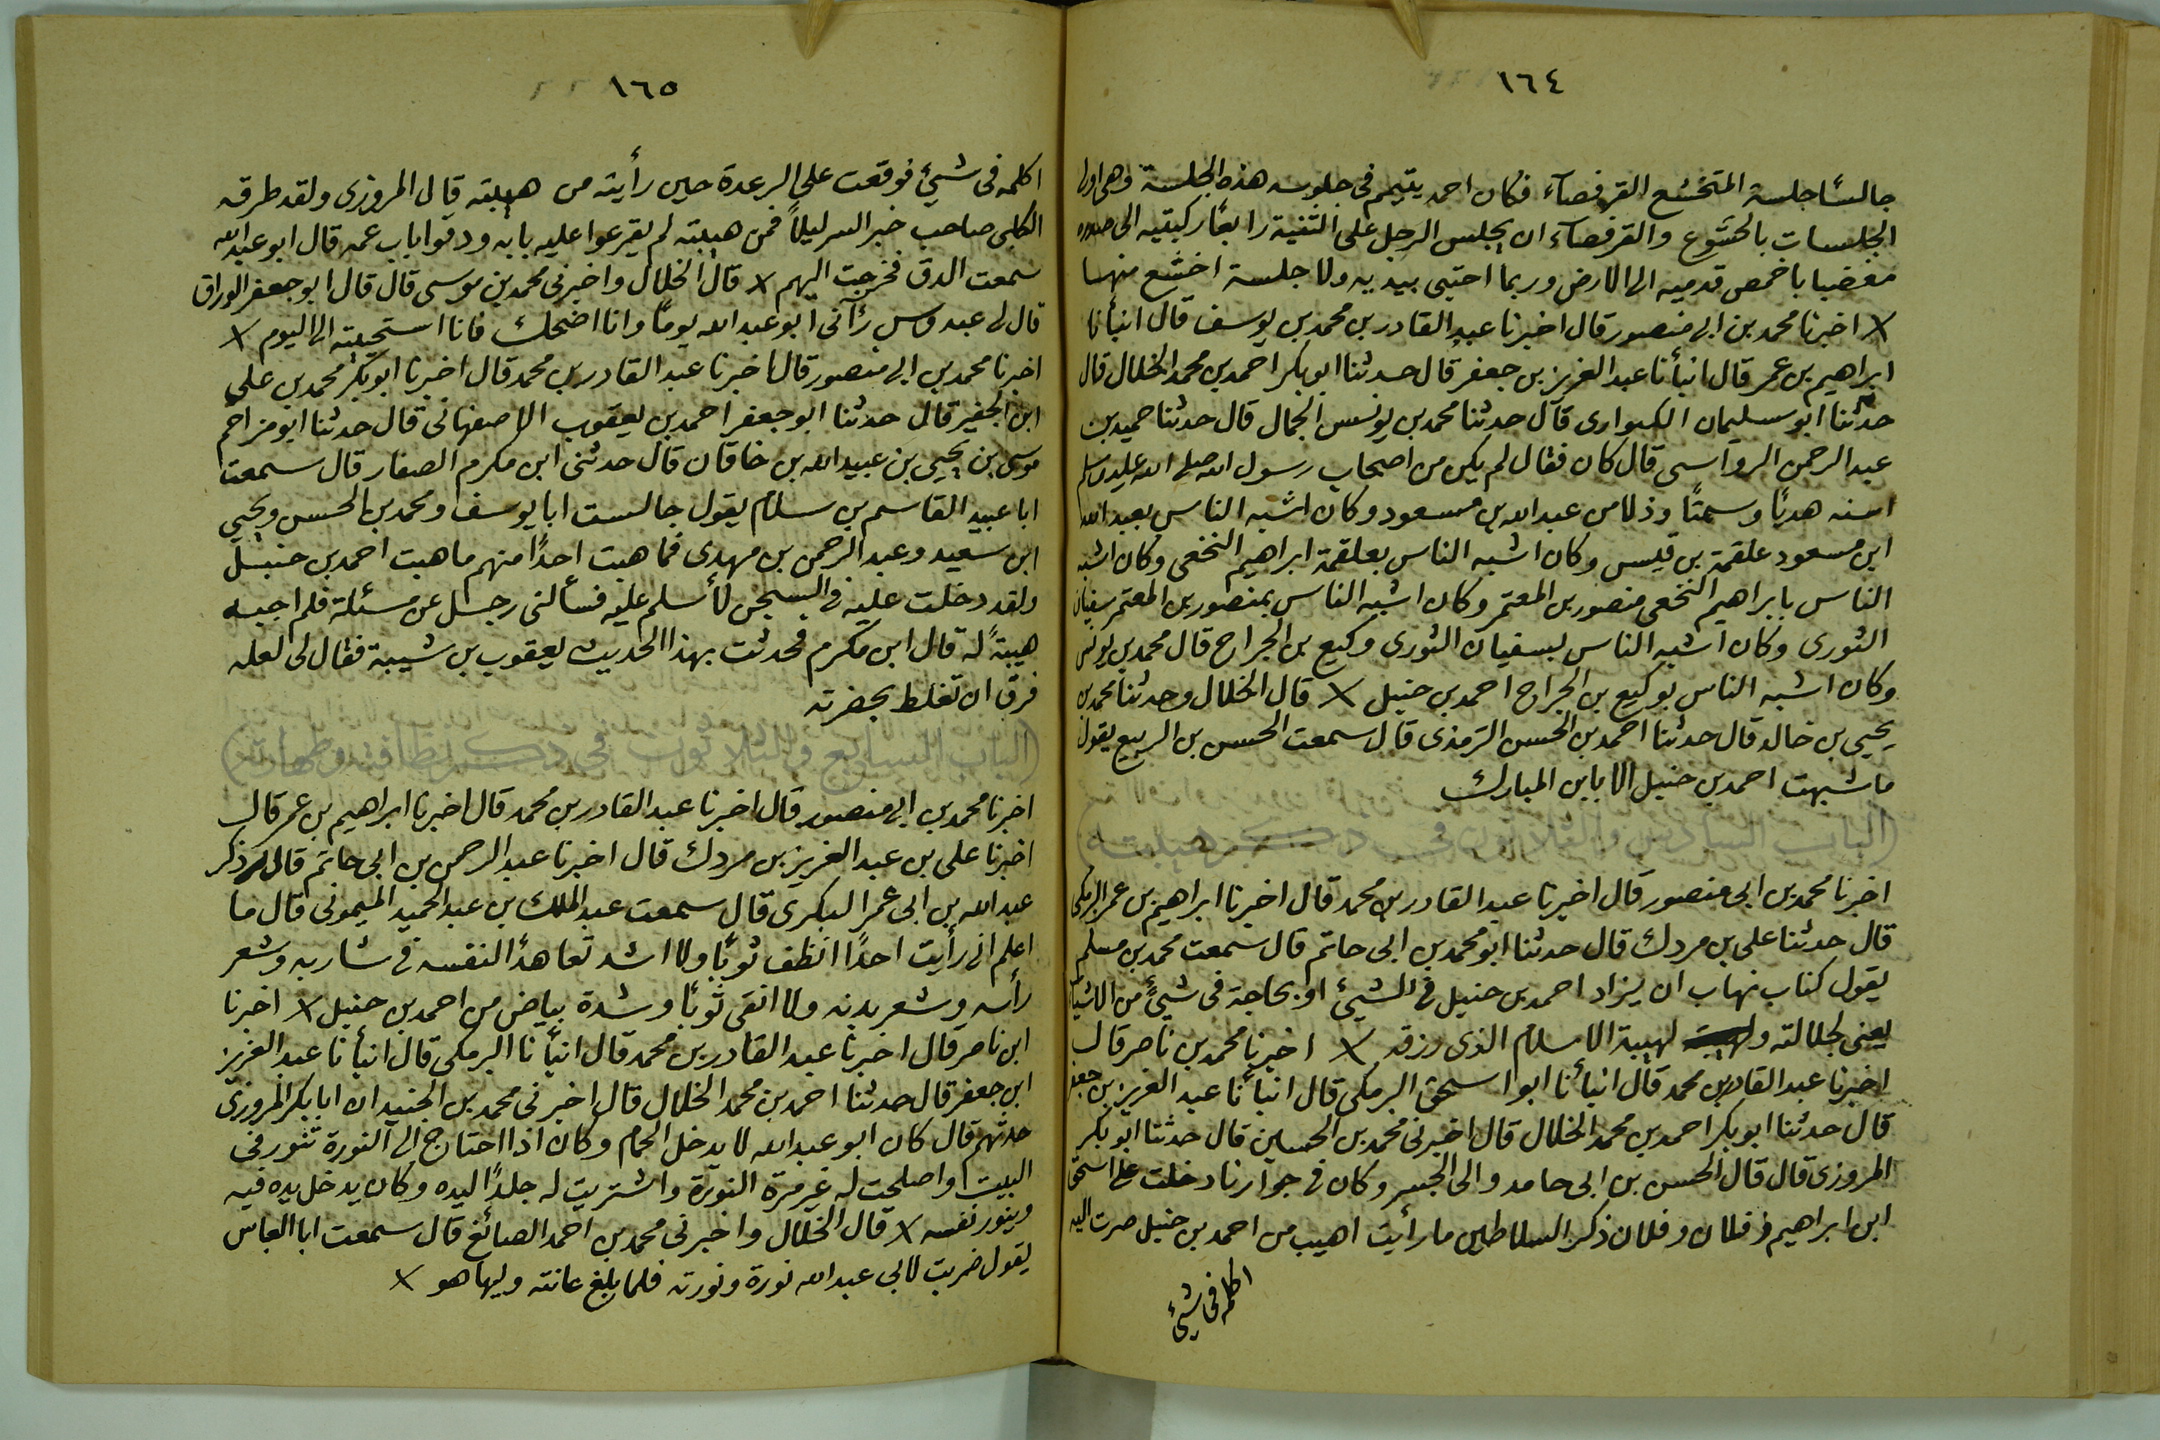 ١٦٤
جالسًا جلسة المتخشع القرفصآء فكان احمد يتيمم في جلوسه هذه الجلسة وهي اولى
الجلسات بالخشوع والقرفصآء ان يجلس الرجل على الثفنية رابعًا ركبتيه الى صدره
مفضيا باخمص قدميه الى الارض وربما احتبى بيديه ولا جلسة اخشع منها
× اخبرنا محمد بن ابي منصور قال اخبرنا عبد القادر بن محمد بن يوسف قال انبأنا
ابراهيم بن عمر قال انبأنا عبد العزيز بن جعفر قال حدثنا ابو بكر احمد بن محمد الخلال قال
حدثنا ابو سليمان قال حدثنا محمد بن يونس الجمال قال حدثنا حميد بن
عبد الرحمن الرواسي قال كان فقال لم يكن من اصحاب رسول الله صلى الله عليه وسلم
اسنه هديًا وسمتًا وذلا من عبد الله بن مسعود وكان اشبه الناس بعبد الله
ابن مسعود علقمة بن قيس وكان اشبه الناس بعلقمة ابراهيم النخعي وكان اشبه
الناس بابراهيم النخعي منصور بن المعتمر وكان اشبه الناس بمنصور بن المعتمر سفيان
الثوري وكان اشبه الناس بسفيان الثوري وكيع بن الجراح قال محمد بن يونس
وكان اشبه الناس بوكيع بن الجراح احمد بن حنبل × قال الخلال وحدثنا محمد بن
يحيى بن خالد قال حدثنا احمد بن الحسن الترمذي قال سمعت الحسن بن الربيع يقول
ما شبهت احمد بن حنبل الا بابن المبارك
(الباب السادس والثلاثون في ذكر هيبته)
اخبرنا محمد بن ابي منصور قال اخبرنا عبد القادر بن محمد قال اخبرنا ابراهيم بن عمر البرمكي
قال حدثنا علي بن مردك قال حدثنا ابو محمد بن ابي حاتم قال سمعت محمد بن مسلم
يقول كنا نهاب ان يزاد احمد بن حنبل في الشيئ او بحاجة في شيئ من الاشيآ
يعني لجلالته لهيبة الاسلام الذي رزقه × اخبرنا محمد بن ناصر قال
اخبرنا عبد القادر بن محمد قال انبأنا ابو اسحق البرمكي قال انبأنا عبد العزيز بن جعفر
قال حدثنا ابو بكر احمد بن محمد الخلال قال اخبرني محمد بن الحسين قال حدثنا ابو بكر
المروزي قال قال الحسن بن ابي حامد والي الجسر وكان في جوارنا دخلت على اسحق
ابن ابراهيم وفلان وفلان ذكر السلاطين ما رأيت اهيب من احمد بن حنبل صرت اليه
اكلمه في شيئ
١٦٥
اكلمه في شيئ فوقعت علي الرعدة حين رأيته من هيبته قال المروزي ولقد طرقه
الكلبي صاحب خبر السر ليلاً فمن هيبته لم يقرعوا عليه بابه ودقوا باب عمه قال ابو عبد الله
سمعت الدق فخرجت اليهم × قال الخلال واخبرني محمد بن موسى قال قال ابو جعفر الوراق
قال لي عبدوس رآني ابو عبد الله يومًا وانا اضحك فانا استحييته الى اليوم ×
اخبرنا محمد بن ابي منصور قال اخبرنا عبد القادر بن محمد قال اخبرنا ابو بكر محمد بن علي
ابن الجفير قال حدثنا ابو جعفر احمد بن يعقوب الاصفهاني قال حدثنا ابو مزاحم
موسى بن يحيى بن عبيد الله بن خاقان قال حدثني ابن مكرم الصفار قال سمعت
ابا عبيد القاسم بن سلام يقول جالست ابا يوسف ومحمد بن الحسن ويحيى
ابن سعيد وعبد الرحمن بن مهدي فما هبت احدًا منهم ما هبت احمد بن حنبل
ولقد دخلت عليه في السجن لأسلم عليه فسألني رجل عن مسئلة فلم اجبه
هيبةً له قال ابن مكرم فحدثت بهذا الحديث يعقوب بن شيبة فقال لي لعله
فرق ان تغلط بحضرته
(الباب السابع والثلاثون في ذكر نظافته وطهارته)
اخبرنا محمد بن ابي منصور قال اخبرنا عبد القادر بن محمد قال اخبرنا ابراهيم بن عمر قال
اخبرنا علي بن عبد العزيز بن مردك قال اخبرنا عبد الرحمن بن ابي حاتم قال ذكر
عبد الله بن ابي عمر البكري قال سمعت عبد الملك بن عبد الحميد الميموني قال ما
اعلم اني رأيت احدًا انظف ثوبًا ولا اشد تعاهدًا لنفسه في شاربه وشعر
رأسه وشعر بدنه ولا انقى ثوبًا وشدة بياض من احمد بن حنبل × اخبرنا
ابن ناصر قال اخبرنا عبد القادر بن محمد قال انبأنا البرمكي قال انبأنا عبد العزيز
ابن جعفر قال حدثنا احمد بن محمد الخلال قال اخبرني محمد بن الجنيد ان ابا بكر المروزي
حدثهم قال كان ابو عبد الله لا يدخل الحمام وكان اذا احتاج الى النورة تنور في
البيت واصلحت له غير مرة النورة واشتريت له جلدًا ليده وكان يدخل يده فيه
وينور نفسه × قال الخلال واخبرني محمد بن احمد الصائغ قال سمعت ابا العباس
يقول ضربت لابي عبد الله نورة ونورته فلما بلغ عانته وليها هو ×